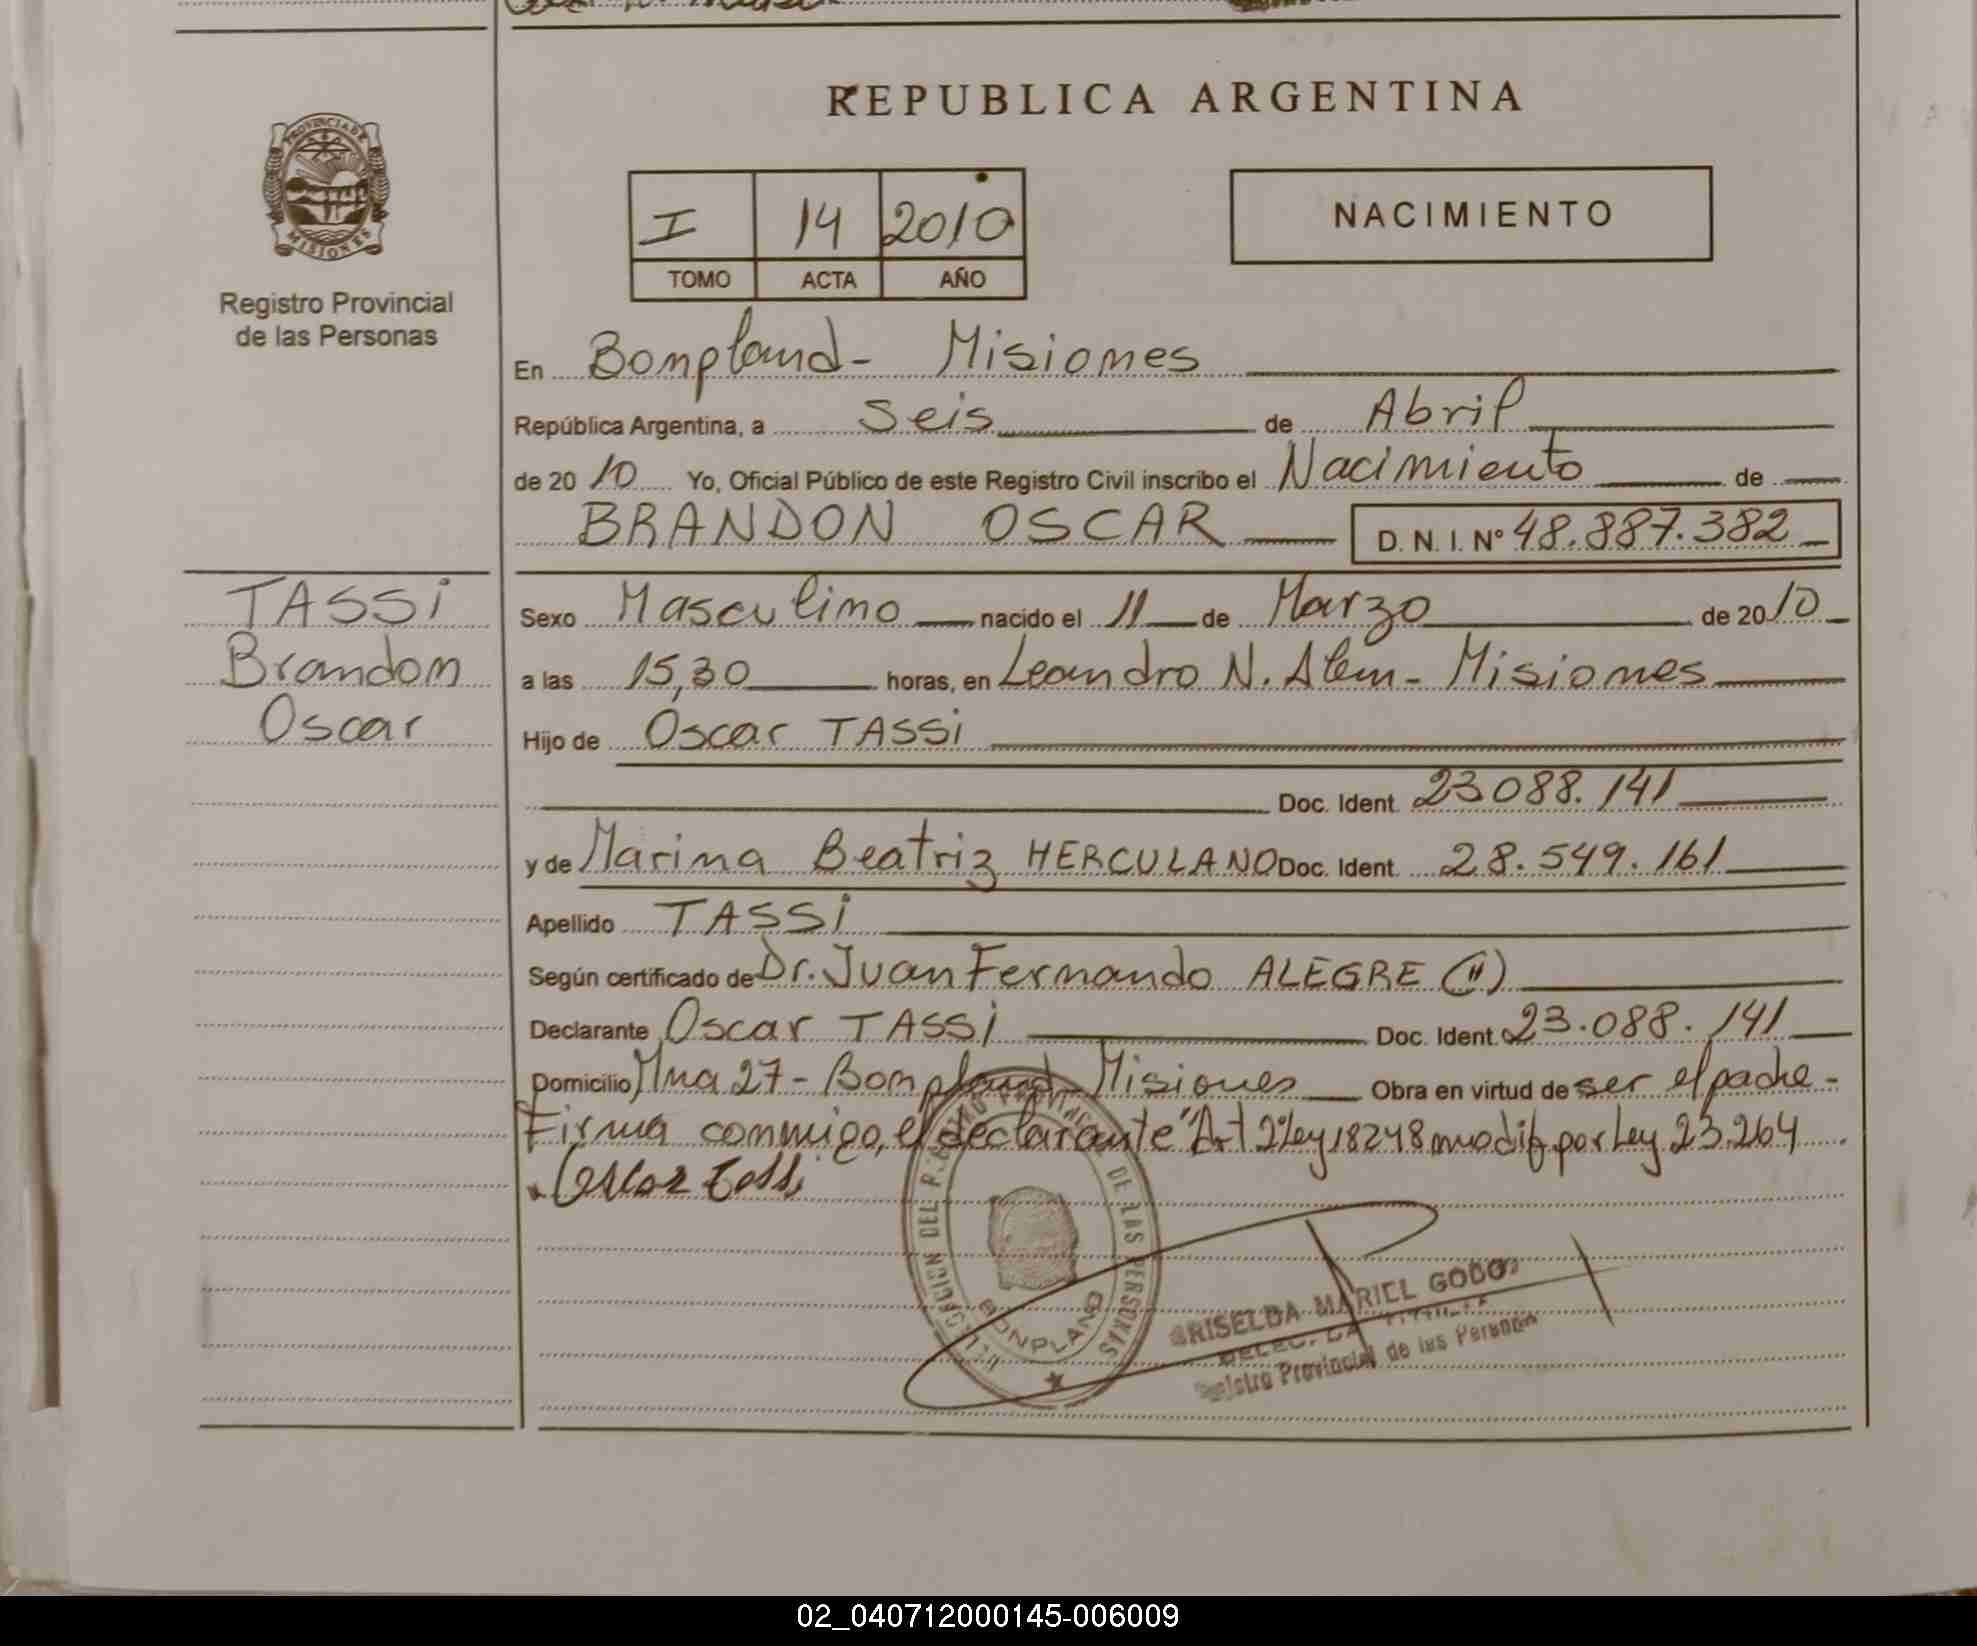 REPUBLICA ARGENTINA
PROVINCIA DE MISIONES
Registro Provincial
de las Personas
I 14 2010
TOMO ACTA AÑO
NACIMIENTO
En Bompland - Misiones
República Argentina, a seis de Abril
de 2010 Yo, Oficial Público de este Registro Civil inscribo el Nacimiento de
BRANDON OSCAR D. N. I. N° 48.887.382
TASSi
Brandon
Oscar
Sexo Masculino nacido el 11 de Marzo de 2010
a las 15,30 horas, en Leandro N. Alem - Misiones
Hijo de Oscar TASSi
Doc. Ident. 23.088.141
y de Marina Beatriz HERCULANO Doc. Ident. 28.549.161
Apellido TASSi
Según certificado de Dr. Juan Fernando ALEGRE (H)
Declarante Oscar TASSi Doc. Ident. 23.088.141
Domicilio Mna 27 - Bompland - Misiones Obra en virtud de ser el padre -
Firma conmigo, el declarante "Art 2° Ley 18248 modif por Ley 23.264
Oscar Tassi
REGISTRO PROVINCIAL DE LAS PERSONAS
BONPLAND
GRISELDA MARIEL GODOY
DELEG. TITULAR
Registro Provincial de las Personas
02_040712000145-006009